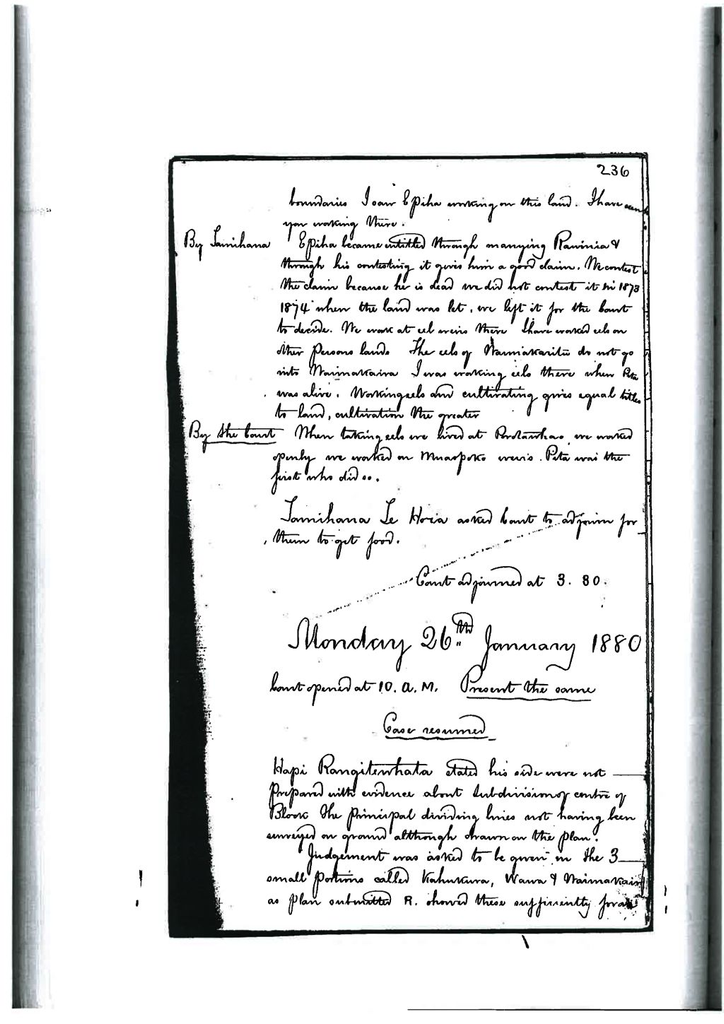 236
boundaries I saw Epiha working on this land. I have seen
you working there.
By Tamihana Epiha became entitled through marrying Rawinia &
through his contesting it gives him a good claim. We contest
the claim because he is dead we did not contest it in 1873
1874 when the land was let, we left it for the Court
to decide. We work at eel weirs there I have worked eels on
other Persons lands The eels of do not go
into Waimakaira I was working eels there when Pita
was alive. Working eels and cultivating gives equal titles
to land, cultivation the greater
By the Court When taking eels we lived at we worked
openly we worked on Muaupoko weirs. Pita was the
first who did so.
Tamihana Te Hoia asked Court to adjourn for
them to get food.
Court adjourned at 3.80.
Monday 26th January 1880
Court opened at 10.A.M. Present the same
Case resumed
Hapi Rangitewhata stated his side were not
Prepared with evidence about Subdivision of centre of
Block the Principal dividing lines not having been
surveyed on ground although drawn on the plan.
Judgement was asked to be given in the 3
small Portions called Kahukura, Wawa & Waimakaira
as Plan submitted R. showed these sufficiently for all